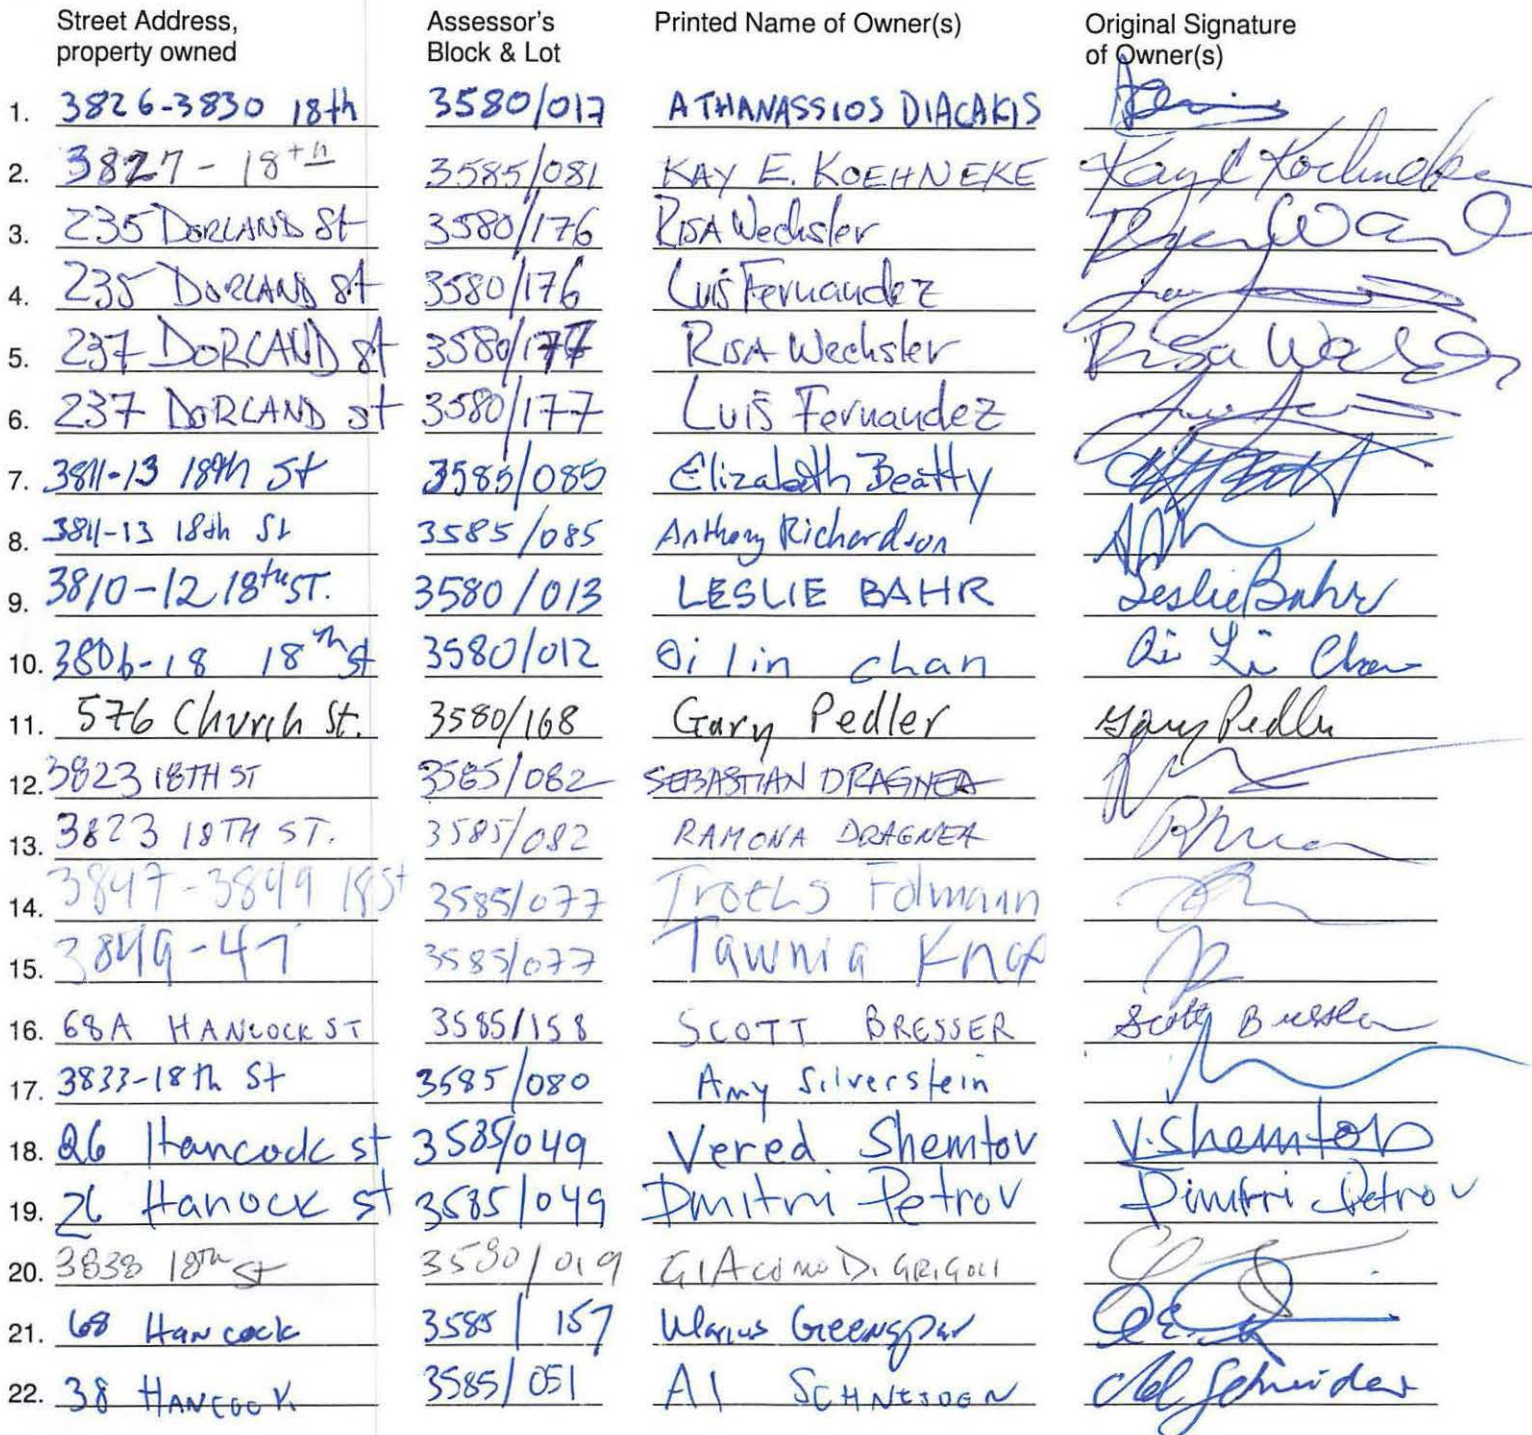 Street Address, property owned Assessor's Block & Lot Printed Name of Owner(s) Original Signature of Owner(s)
1. 3826-3830 18th 3580/017 ATHANASSIOS DIACAKIS
2. 3827 - 18th 3585/081 KAY E. KOEHNEKE Kay E Koehneke
3. 235 DORLAND St 3580/176 RISA Wechsler
4. 235 DORLAND St 3580/176 Luis Fernandez
5. 237 DORLAND St 3580/177 RISA Wechsler Risa
6. 237 DORLAND St 3580/177 Luis Fernandez
7. 3811-13 18th St 3585/085 Elizabeth Beatty
8. 3811-13 18th St 3585/085 Anthony Richardson
9. 3810-12 18th ST. 3580/013 LESLIE BAHR Leslie Bahr
10. 3806-18 18th St 3580/012 Qi lin chan Qi Li Chan
11. 576 Church St. 3580/168 Gary Pedler Gary Pedler
12. 3823 18TH ST 3585/082 SEBASTIAN DRAGNEA
13. 3823 18TH ST. 3585/082 RAMONA DRAGNEA
14. 3847-3849 18St 3585/077 Troels Folmann
15. 3849-47 3585/077 Tawnia Knox
16. 68A HANCOCK ST 3585/158 SCOTT BRESSER Scott Bresser
17. 3833-18th St 3585/080 Amy Silverstein
18. 26 Hancock st 3585/049 Vered Shemtov V. Shemtov
19. 26 Hanock st 3585/049 Dmitri Petrov Dmitri Petrov
20. 3838 18th St 3580/019 GIACOMO DI GRIGOLI
21. 68 Hancock 3585/157 Marius Greenspan
22. 38 HANCOCK 3585/051 Al SCHNEIDER Al Schneider